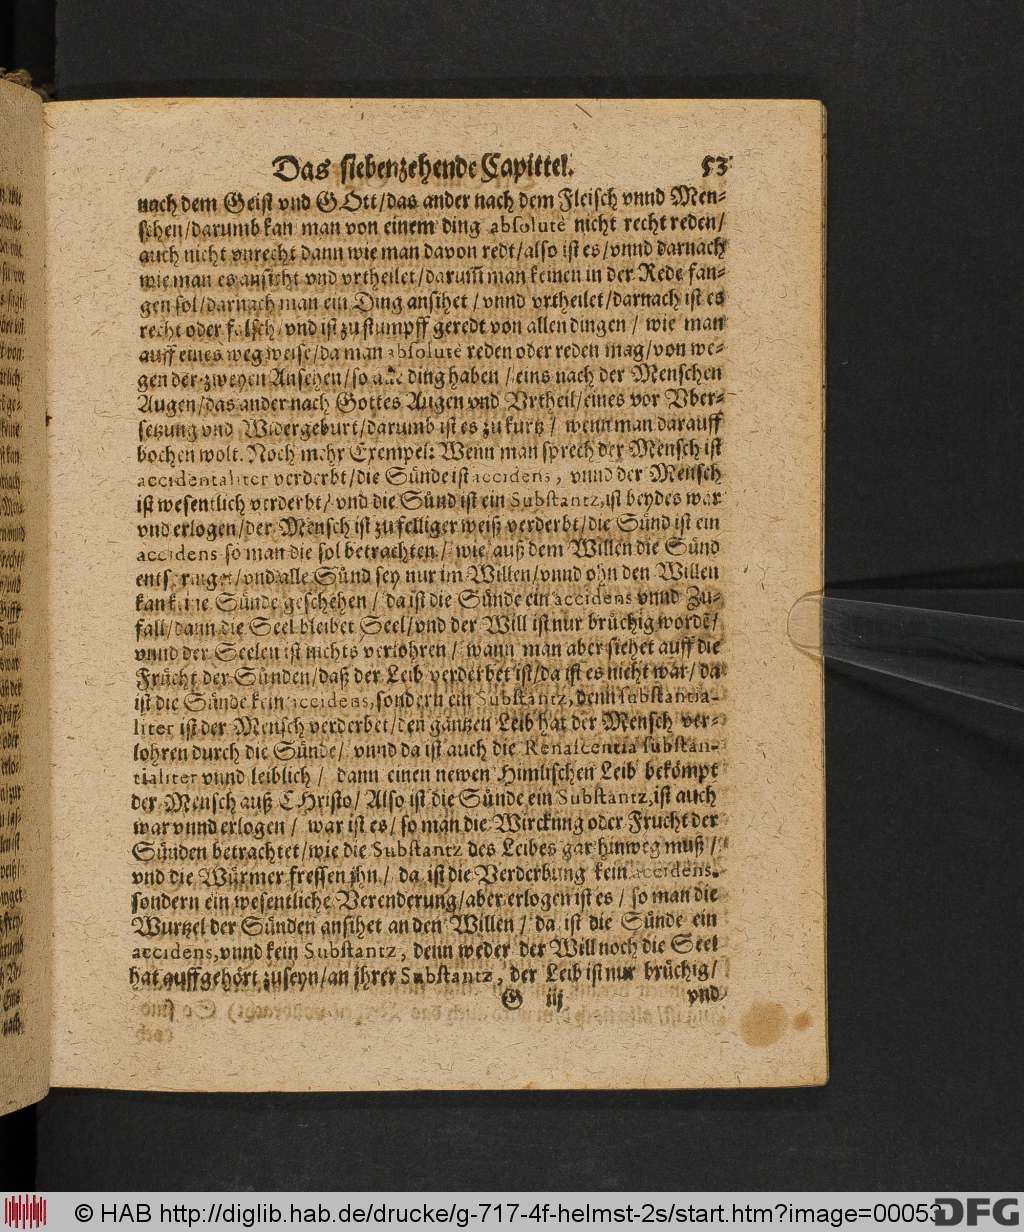 Das siebenzehende Capittel. 53
nach dem Geist vnd GOtt/das ander nach dem Fleisch vnnd Men-
schen/darumb kan man von einem ding absolutè nicht recht reden/
auch nicht vnrecht dann wie man davon redt/also ist es/vnnd darnach
wie man es ansicht vnd vrtheilet/darum̃ man keinen in der Rede fan-
gen sol/darnach man ein Ding ansihet/vnnd vrtheilet/darnach ist es
recht oder falsch/vnd ist zu stumpff geredt von allen dingen/ wie man
auff eines weg weise/da man absolutè reden oder reden mag/von we-
gen der zweyen Ansehen/so alle ding haben/ eins nach der Menschen
Augen/das ander nach Gottes Augen vnd Vrtheil/eines vor Vber-
setzung vnd Widergeburt/darumb ist es zu kurtz/ wenn man darauff
bochen wolt. Noch mehr Exempel: Wenn man sprech der Mensch ist
accidentaliter verderbt/die Sünde ist accidens, vnnd der Mensch
ist wesentlich verderbt/ vnd die Sünd ist ein Substantz,ist beydes war
vnd erlogen/der Mensch ist zufelliger weiß verderbt/die Sünd ist ein
accidens so man die sol betrachten/ wie auß dem Willen die Sünd
entspringet/vnd alle Sünd sey nur im Willen/vnnd ohn den Willen
kan keine Sünde geschehen/ da ist die Sünde ein accidens vnnd Zu-
fall/dann die Seel bleibet Seel/vnd der Will ist nur brüchig wordẽ/
vnnd der Seelen ist nichts verlohren/ wann man aber siehet auff die
Frücht der Sünden/daß der Leib verderbet ist/da ist es nicht war/da
ist die Sünde kein accidens,sondern ein Substantz,denn substantia-
liter ist der Mensch verderbet/den gäntzen Leib hat der Mensch ver-
lohren durch die Sünde/ vnnd da ist auch die Renascentia substan-
tialiter vnnd leiblich/ dann einen newen Himlischen Leib bekömpt
der Mensch auß CHristo/Also ist die Sünde ein Substantz,ist auch
war vnnd erlogen/ war ist es/ so man die Wirckung oder Frucht der
Sünden betrachtet/wie die Substantz des Leibes gar hinweg muß/
vnd die Würmer fressen ihn/ da ist die Verderbung kein accidens,
sondern ein wesentliche Verenderung/aber erlogen ist es/ so man die
Wurtzel der Sünden ansihet an den Willen/ da ist die Sünde ein
accidens,vnnd kein Substantz, denn weder der Will noch die Seel
hat auffgehört zu seyn/an jhrer Substantz, der Leib ist nur brüchig/
G iij vnd
© HAB http://diglib.hab.de/drucke/g-717-4f-helmst-2s/start.htm?image=00053
DFG